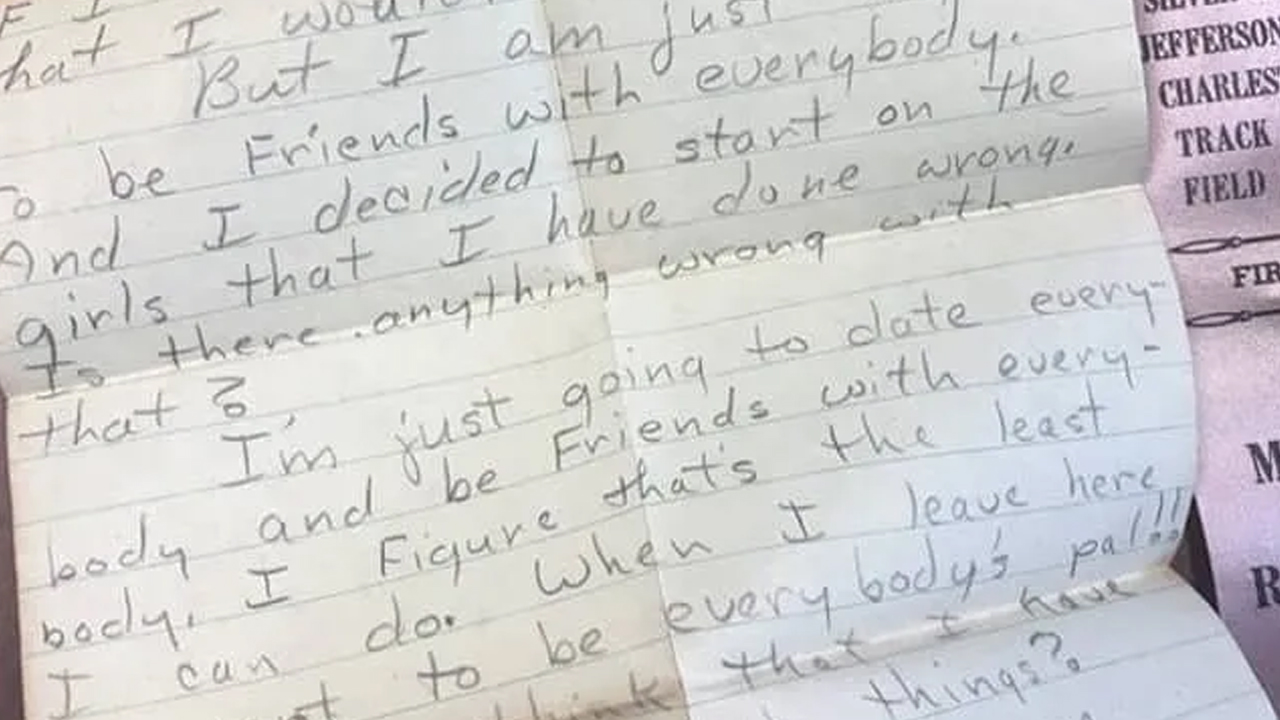 hat I
But I am just
to be Friends with everybody.
And I decided to start on the
girls that I have done wrong.
Is there anything wrong with
that?
I'm just going to date every-
body and be Friends with every-
body. I Figure that's the least
I can do. When I leave here
to be everybody's pal!!
that I have
things?
JEFFERSON
CHARLES
TRACK
FIELD
FIR
M
R